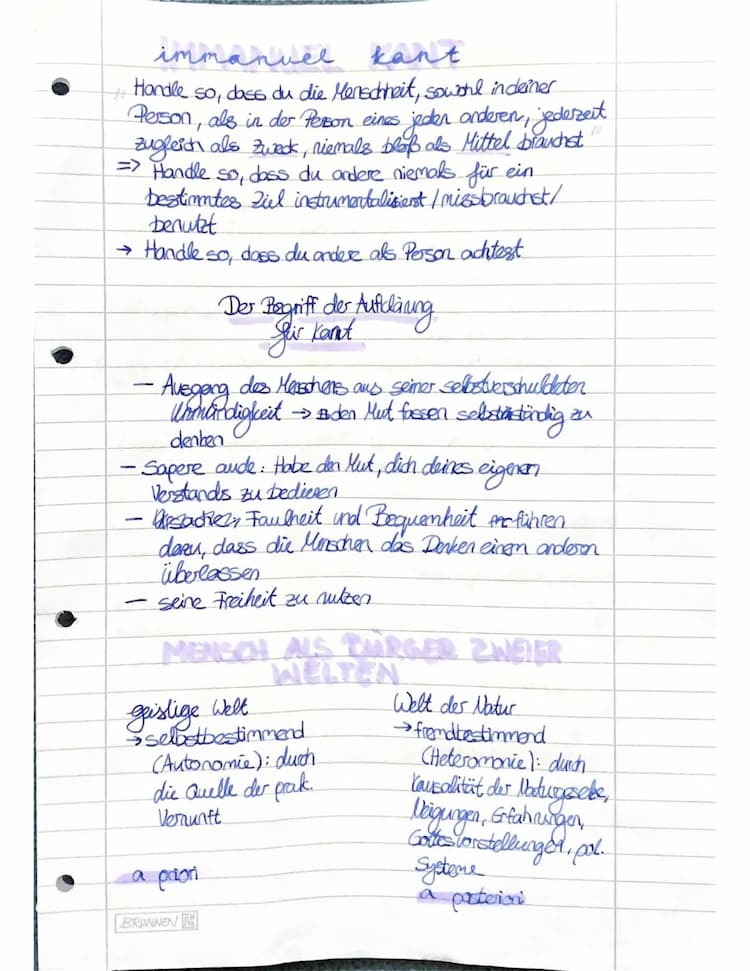 immanuel kant
"Handle so, dass du die Menschheit, sowohl in deiner
Person, als in der Person eines jeden anderen, jederzeit
zugleich als Zweck, niemals bloß als Mittel brauchst"
=> Handle so, dass du andere niemals für ein
bestimmtes Ziel instrumentalisierst / missbrauchst /
benutzt
→ Handle so, dass du andere als Person achtest
Der Begriff der Aufklärung
für Kant
— Ausgang des Menschens aus seiner selbstverschuldeten
Unmündigkeit → den Mut fassen selbstständig zu
denken
— Sapere aude: Habe den Mut, dich deines eigenen
Verstands zu bedienen
— Ursachen, Faulheit und Bequemheit führen
dazu, dass die Menschen das Denken einem anderen
überlassen
— seine Freiheit zu nutzen
MENSCH ALS BÜRGER ZWEIER
WELTEN
geistige Welt
→ selbstbestimmend
(Autonomie): durch
die Quelle der prak.
Vernunft
a priori
Welt der Natur
→ fremdbestimmend
(Heteromonie): durch
Kausalität der Naturgesetze,
Neigungen, Erfahrungen,
Gottesvorstellungen, pol.
Systeme
a posteriori
BRUNNEN